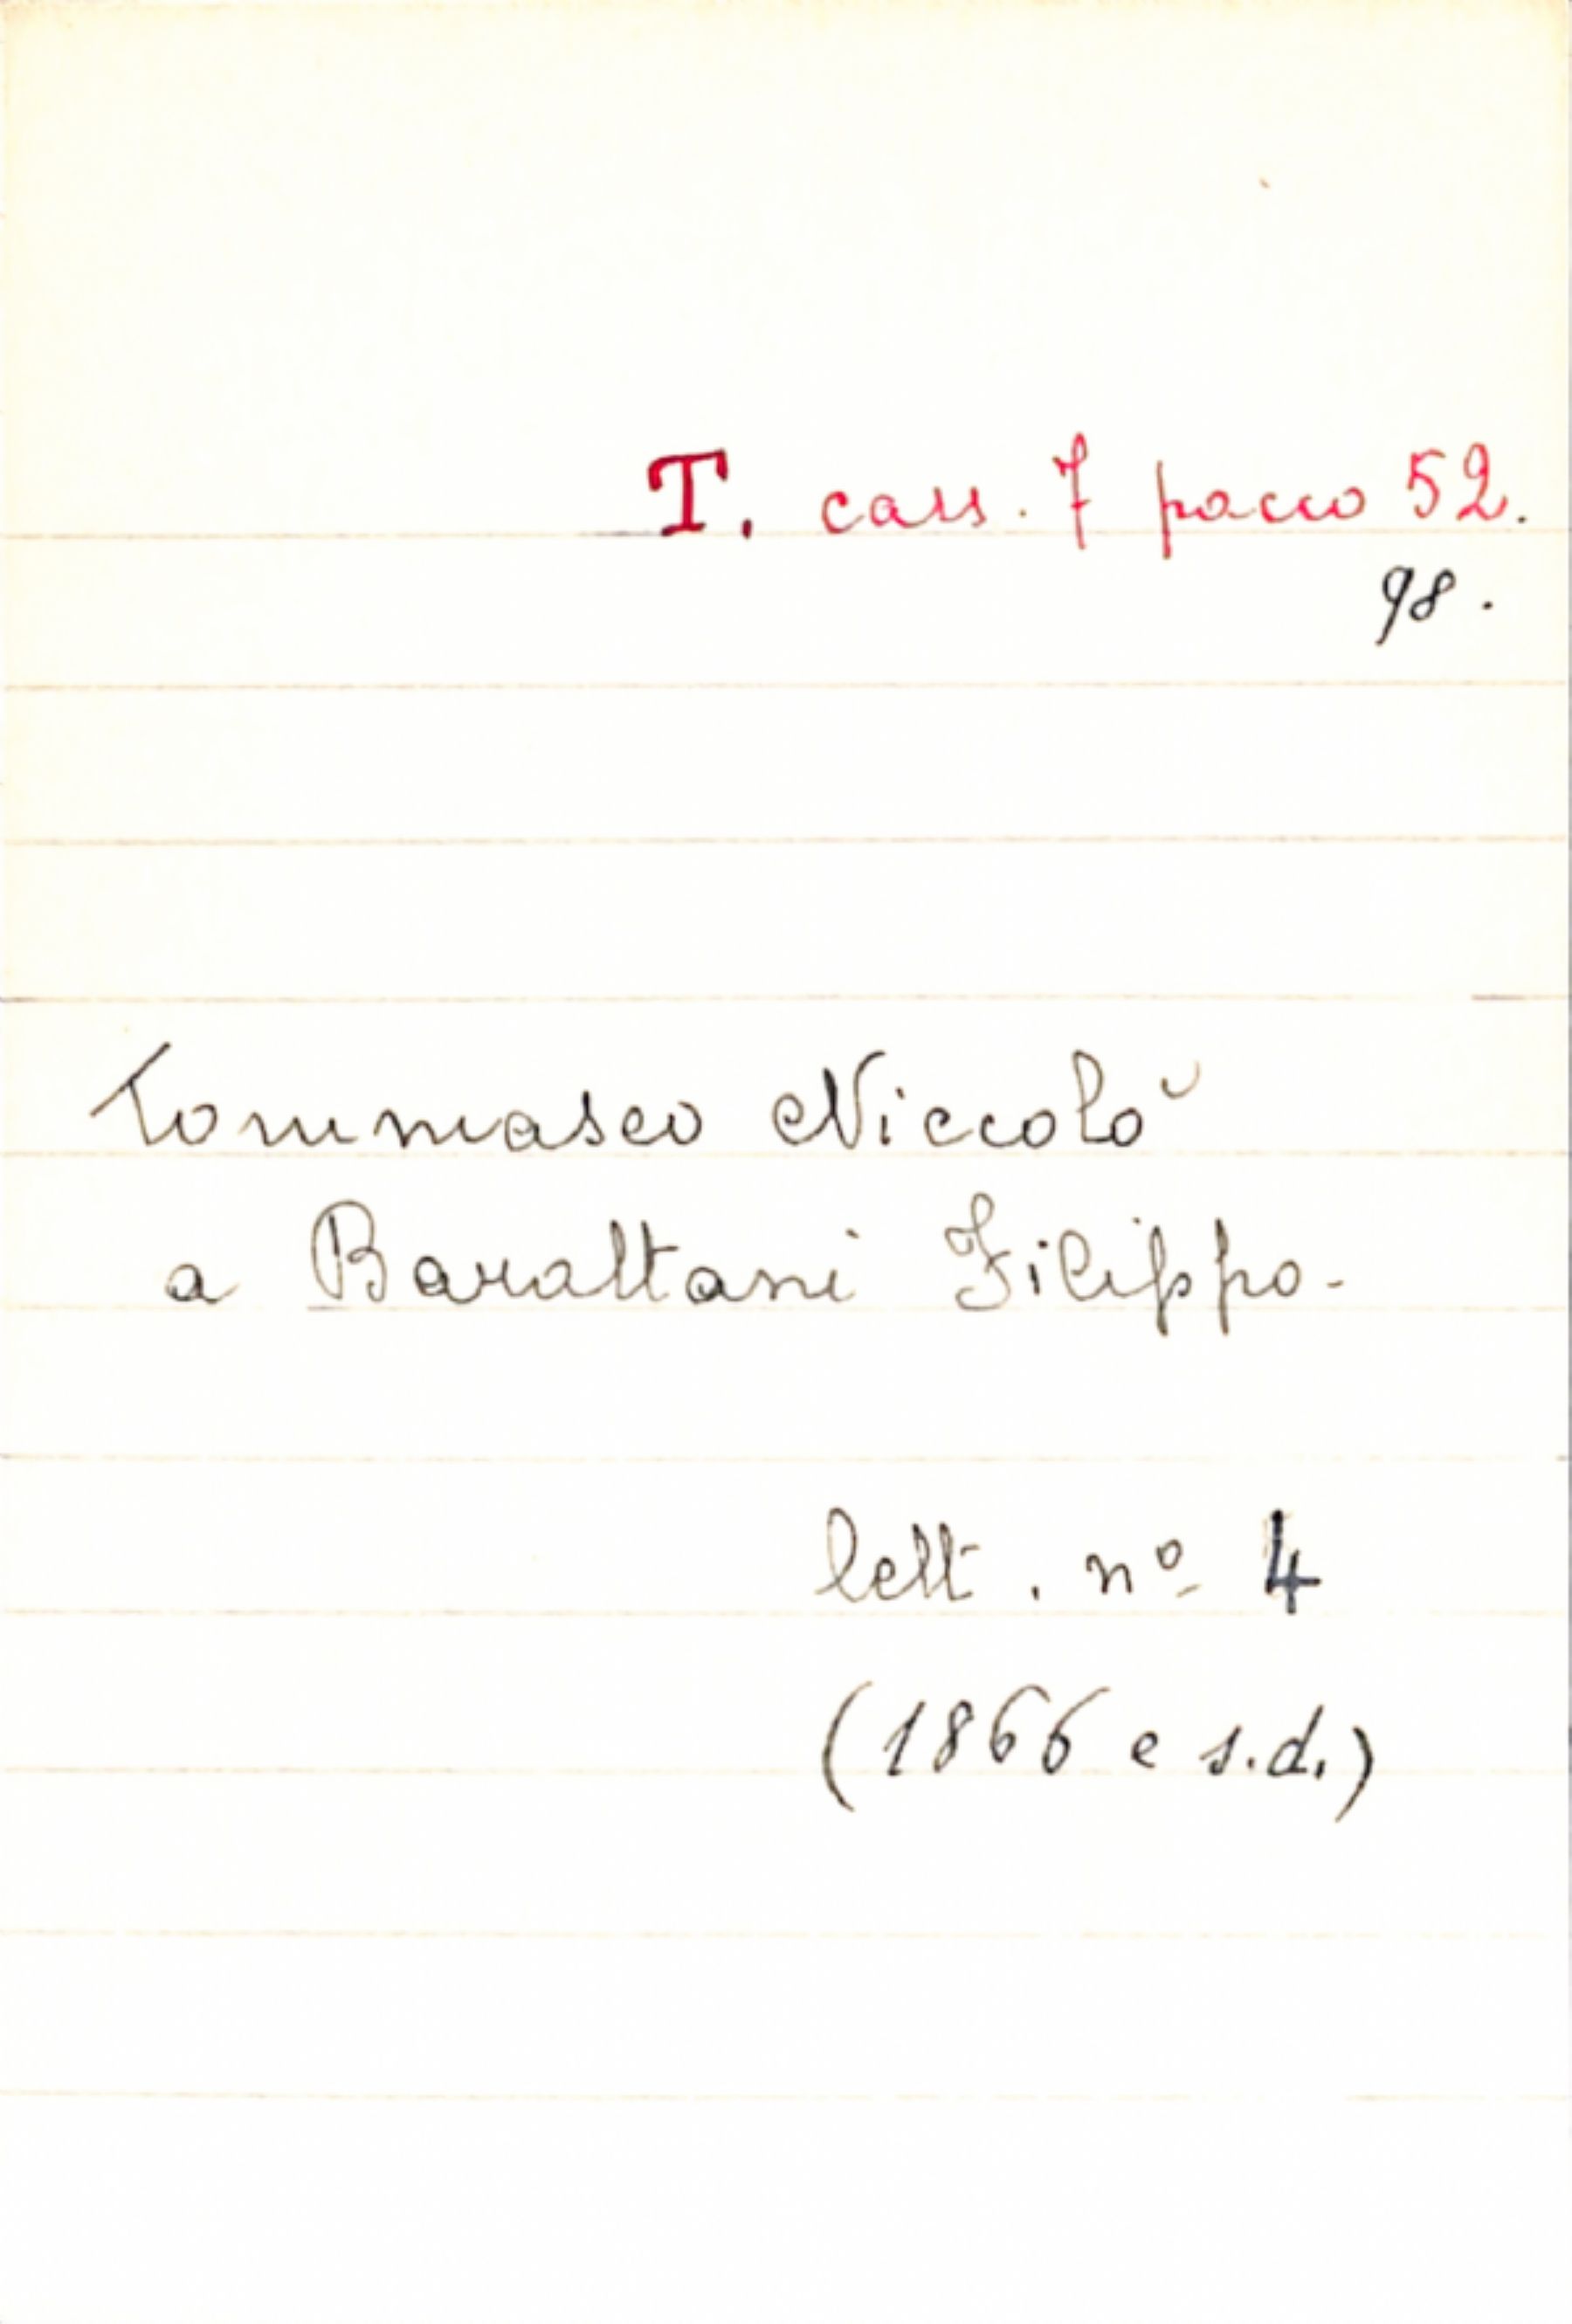 T. cass. 7 pacco 52.
98.
Tommaseo Niccolò
a Barattani Filippo.
lett. nº 4
(1866 e s.d.)